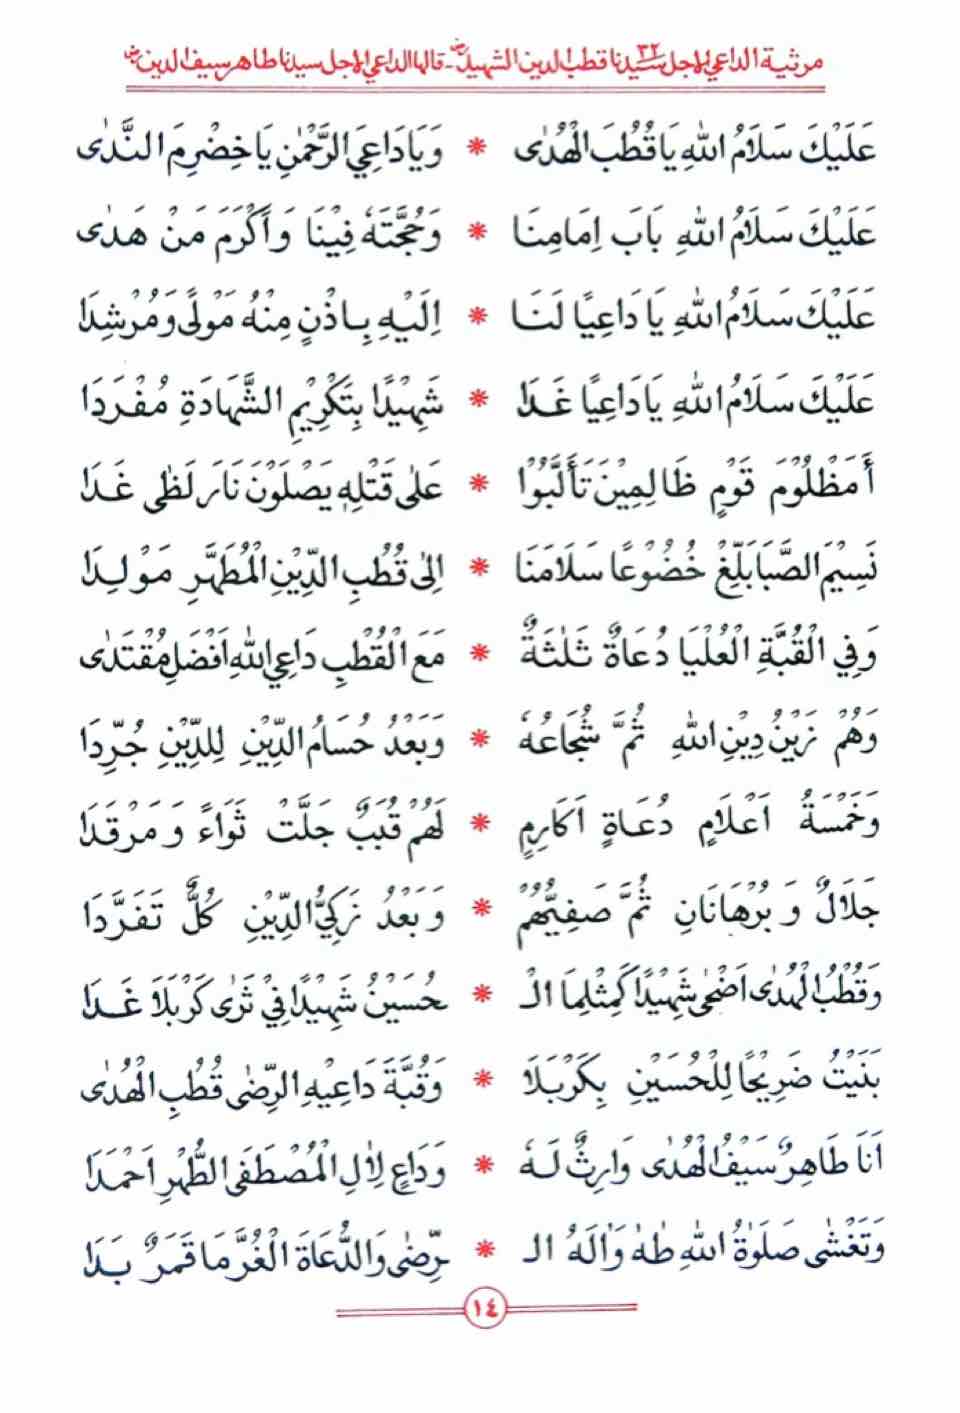 مرثية الداعي الاجل سيدنا قطب الدين الشهيد رض - قالها الداعي الاجل سيدنا طاهر سيف الدين رض
٣٢
عَلَيْكَ سَلَامُ اللهِ يَا قُطُبَ الْهُدٰى * وَيَا دَاعِيَ الرَّحْمٰنِ يَا خِضْرِمَ النَّدٰى
عَلَيْكَ سَلَامُ اللهِ بَابَ اِمَامِنَا * وَحُجَّتَهٗ فِيْنَا وَ اَكْرَمَ مَنْ هَدٰى
عَلَيْكَ سَلَامُ اللهِ يَا دَاعِيًا لَنَا * اِلَيْهِ بِاذْنٍ مِنْهُ مَوْلًى وَمُرْشِدَا
عَلَيْكَ سَلَامُ اللهِ يَا دَاعِيًا غَدَا * شَهِيْدًا بِتَكْرِيْمِ الشَّهَادَةِ مُفْرَدَا
أَمَظْلُوْمَ قَوْمٍ ظَالِمِيْنَ تَأَلَّبُوْا * عَلٰى قَتْلِهٖ يَصْلَوْنَ نَارَ لَظٰى غَدَا
نَسِيْمَ الصَّبَا بَلِّغْ خُضُوْعًا سَلَامَنَا * اِلٰى قُطُبِ الدِّيْنِ الْمُطَهَّرِ مَوْلِدَا
وَفِي الْقُبَّةِ الْعُلْيَا دُعَاةٌ ثَلٰثَةٌ * مَعَ الْقُطْبِ دَاعِي اللهِ اَفْضَلِ مُقْتَدٰى
وَهُمْ زَيْنُ دِيْنِ اللهِ ثُمَّ شُجَاعُهٗ * وَبَعْدُ حُسَامُ الدِّيْنِ لِلدِّيْنِ جُرِّدَا
وَخَمْسَةُ اَعْلَامٍ دُعَاةٍ اَكَارِمٍ * لَهُمْ قُبَبٌ جَلَّتْ ثَوَاءً وَ مَرْقَدَا
جَلَالٌ وَ بُرْهَانَانِ ثُمَّ صَفِيُّهُمْ * وَ بَعْدُ زَكِيُّ الدِّيْنِ كُلٌّ تَفَرَّدَا
وَقُطْبُ الْهُدٰى اَضْحٰى شَهِيْدًا كَمِثْلِمَا الـ * حُسَيْنُ شَهِيْدًا فِيْ ثَرٰى كَرْبَلَا غَدَا
بَنَيْتُ ضَرِيْحًا لِلْحُسَيْنِ بِكَرْبَلَا * وَقُبَّةَ دَاعِيْهِ الرِّضٰى قُطُبِ الْهُدٰى
اَنَا طَاهِرٌ سَيْفُ الْهُدٰى وَارِثٌ لَهٗ * وَدَاعٍ لِاٰلِ الْمُصْطَفَى الطُّهْرِ اَحْمَدَا
وَتَغْشٰى صَلَوٰةُ اللهِ طٰهٰ وَاٰلَهُ الـ * رِّضٰى وَالدُّعَاةَ الْغُرَّ مَا قَمَرٌ بَدَا
١٤